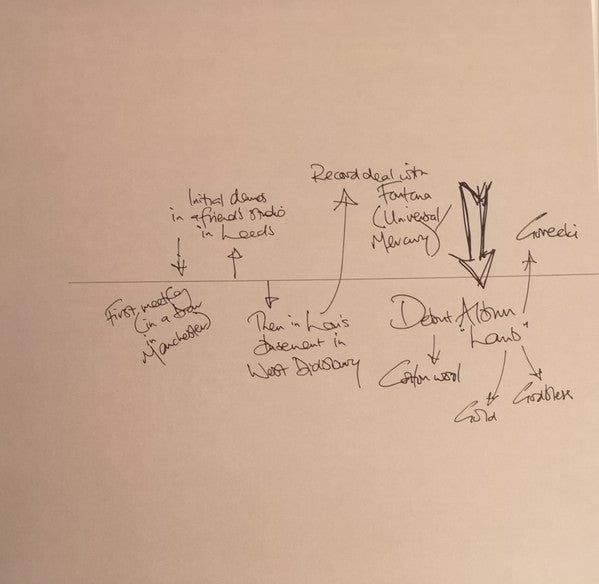 Initial demos
in a friend's studio
in Leeds
Record deal with
Fontana
(Universal/
Mercury)
Goreeki
First meeting
(in a bar
in
Manchester)
Then in Lou's
basement in
West Didsbury
Debut Album
"Lamb"
Cotton wool
Gold
Godbless